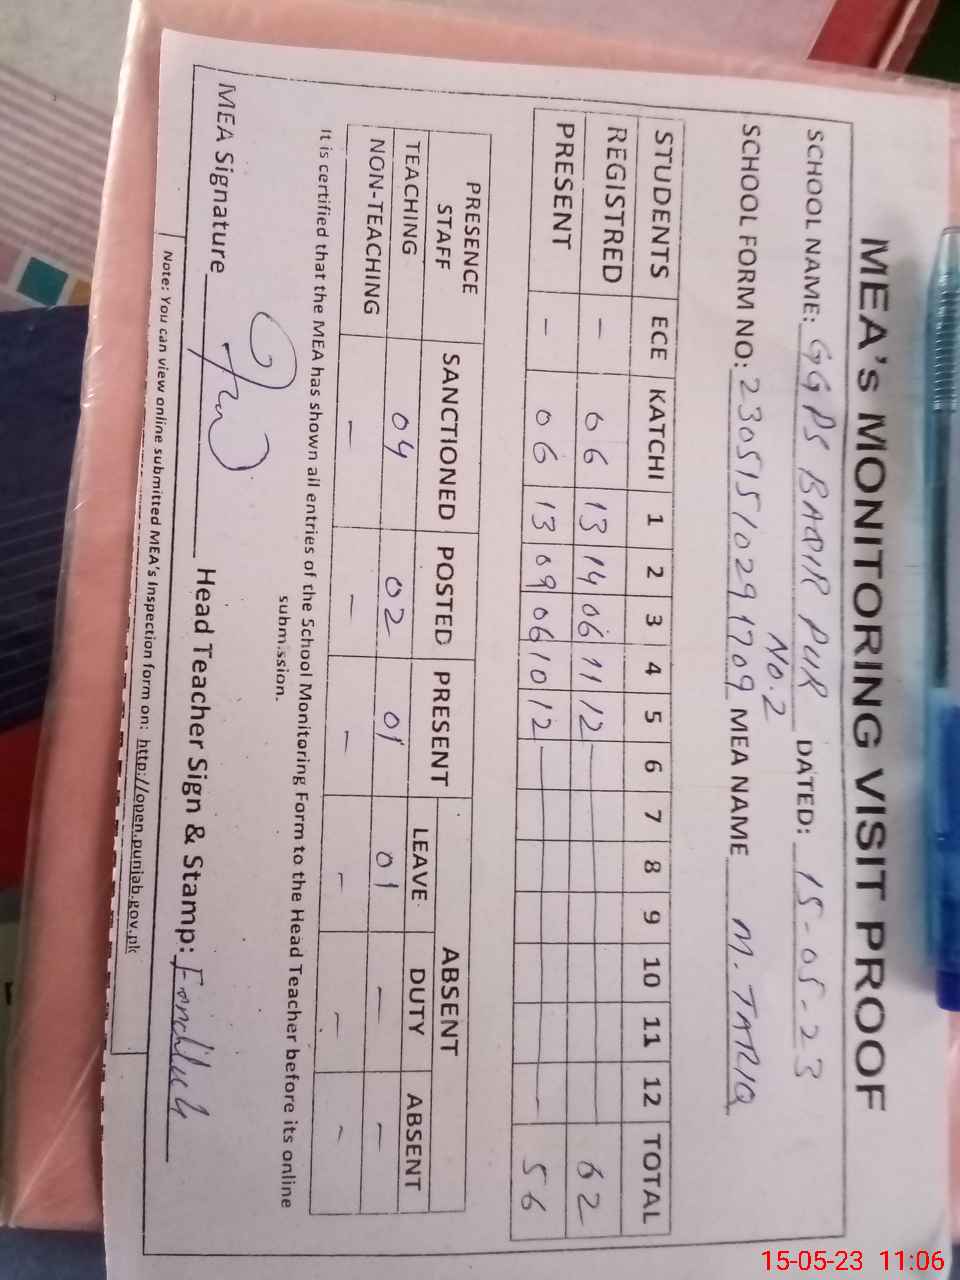 MEA's MONITORING VISIT PROOF
SCHOOL NAME: GGPS BAQIR PUR DATED: 15-05-23
No.2
SCHOOL FORM NO: MEA NAME M. TARIQ
STUDENTS ECE KATCHI 1 2 3 4 5 6 7 8 9 10 11 12 TOTAL
REGISTRED - 66 13 14 06 11 12 62
PRESENT - 06 13 09 06 10 12 56
PRESENCE STAFF SANCTIONED POSTED PRESENT ABSENT
LEAVE DUTY ABSENT
TEACHING 04 02 01 01 - -
NON-TEACHING - - - - - -
It is certified that the MEA has shown all entries of the School Monitoring Form to the Head Teacher before its online
submission.
MEA Signature Head Teacher Sign & Stamp:
Note: You can view online submitted MEA's Inspection form on: http://open.punjab.gov.pk
15-05-23 11:06